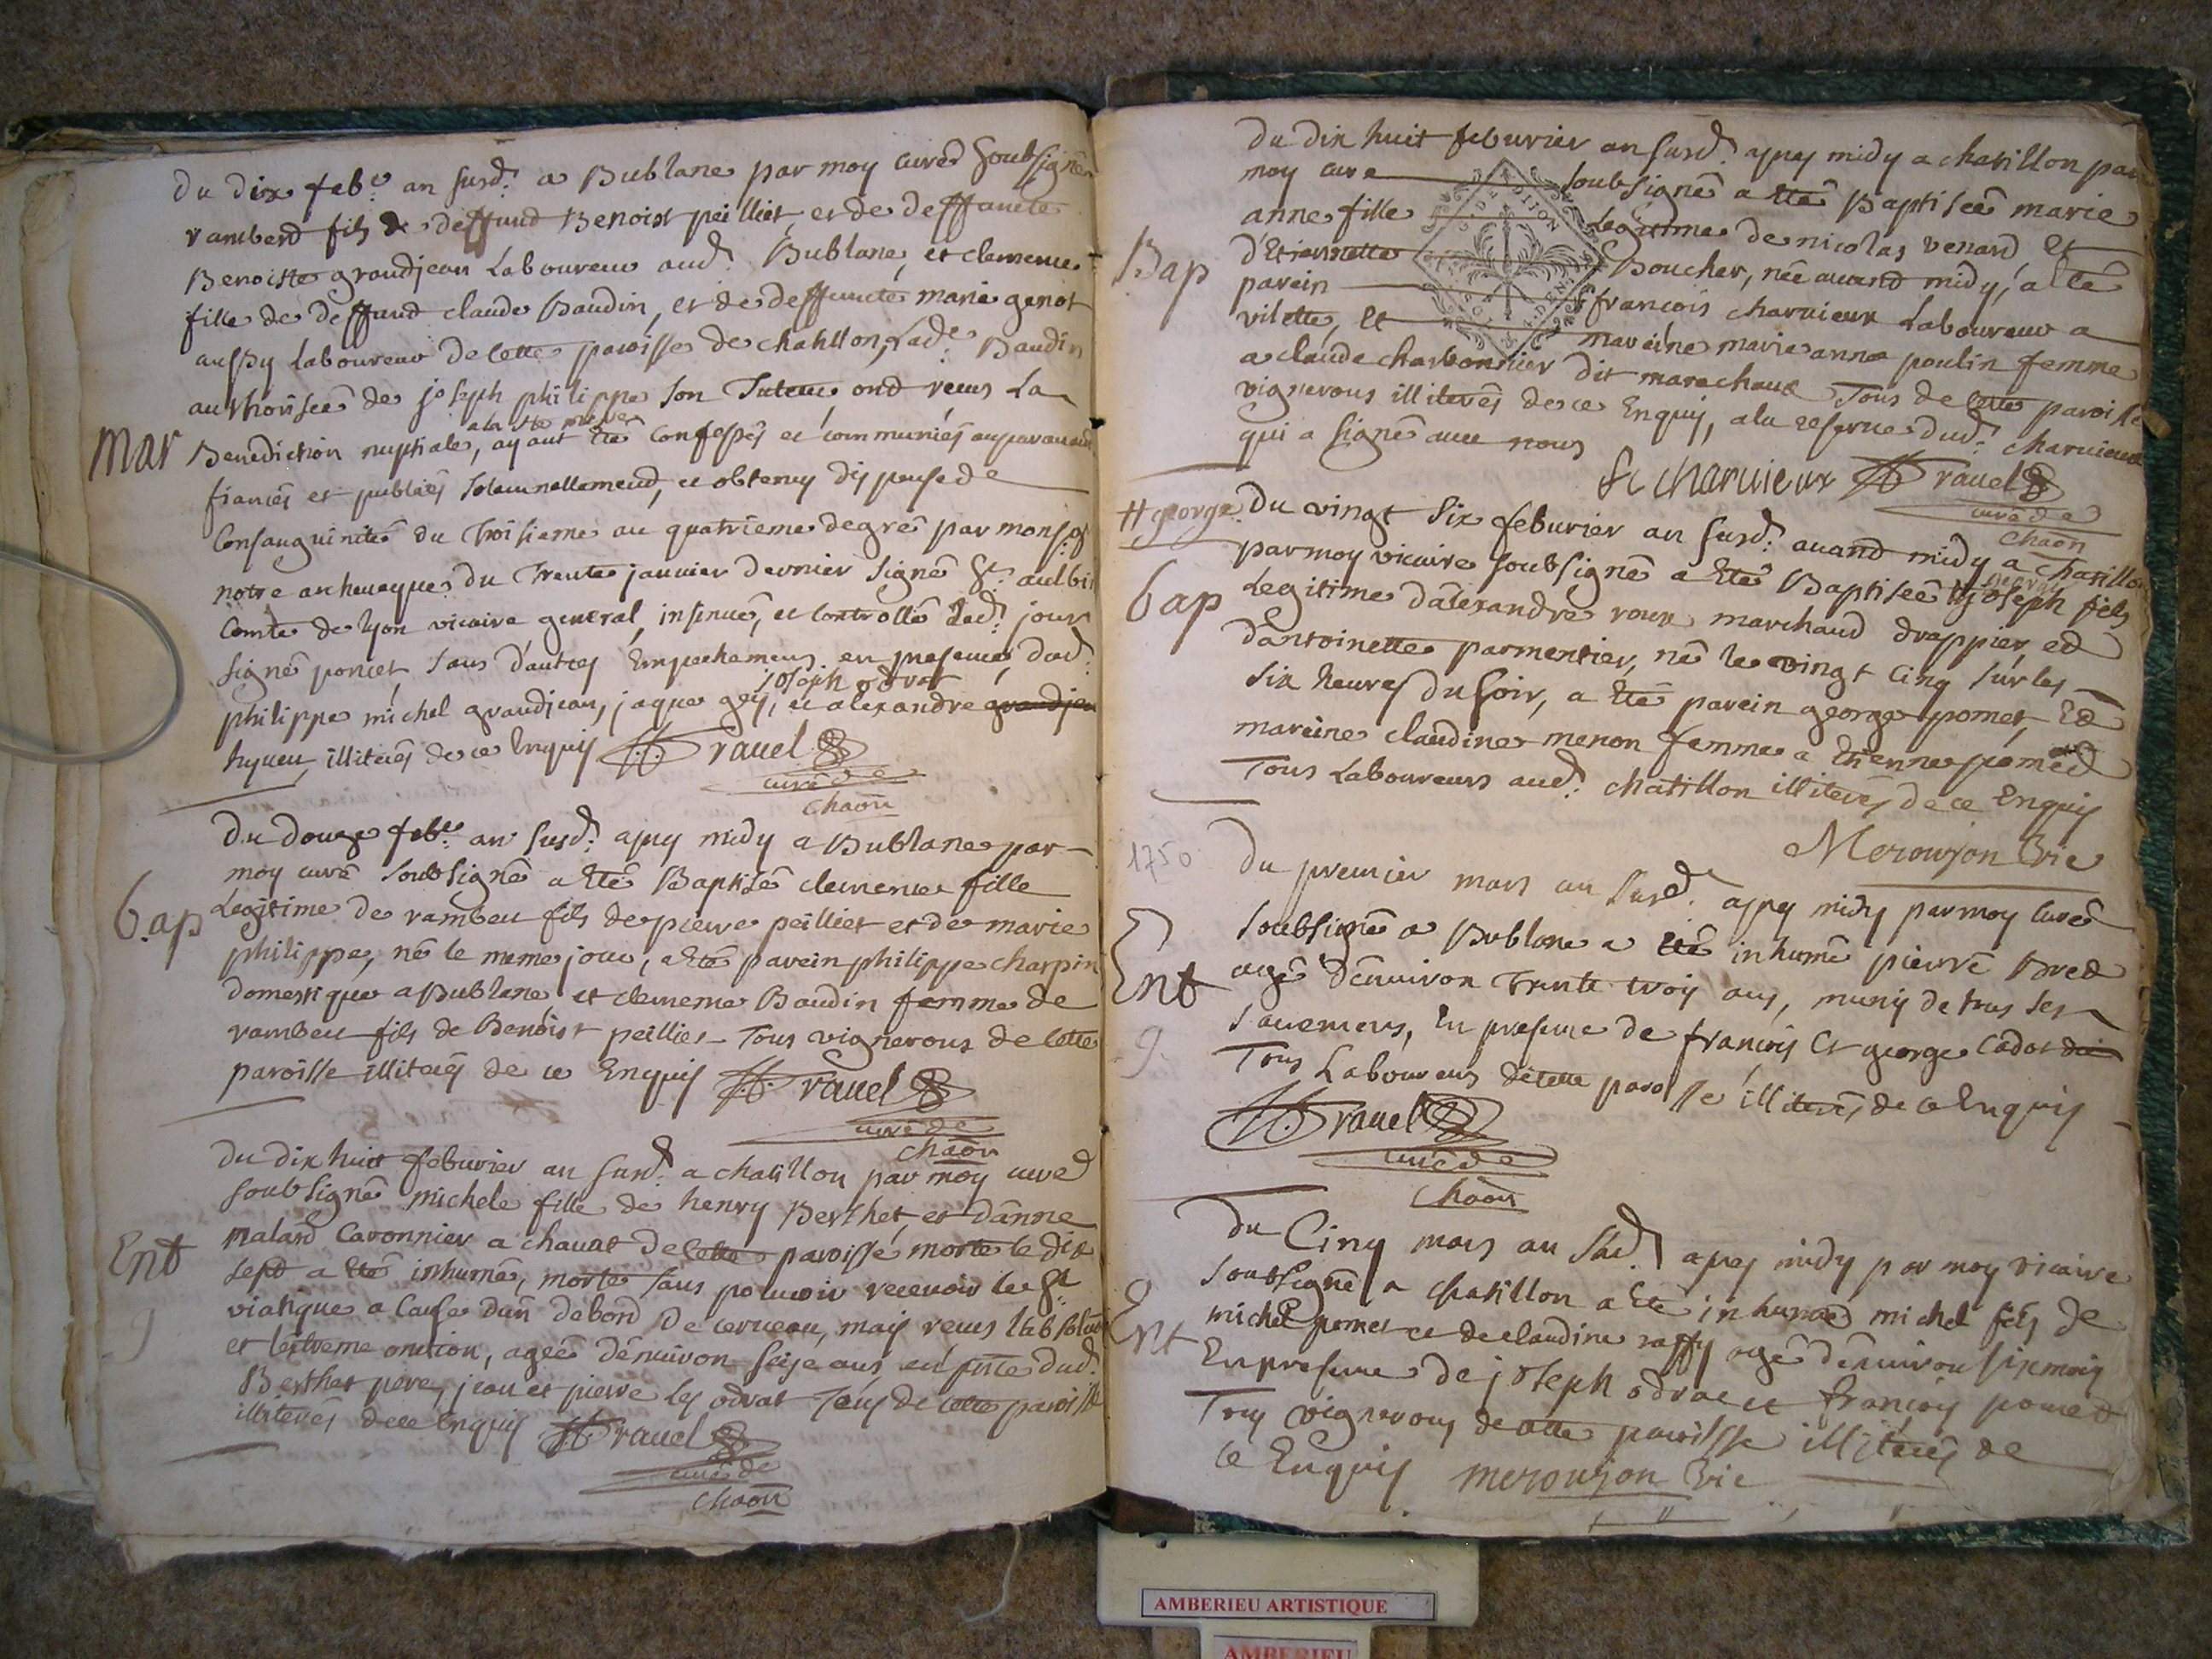 du dix feb.e an susd. a Bublane par moy curé soubsigné
rambert fils de deffund Benoist peilliet et de deffuncte
Benoiste grandjean Laboureur aud. Bublane, et clemence
fille de deffund claude Baudin, et de deffuncte marie genot
aussy Laboureur de cette paroisse de chatillon, Lad.e Baudin
authorisée de joseph philippe son Tuteur ond receus La
a la ste messe
mar
Benediction nuptiale, ayant été confessés et communiés auparavant
fiancés et publiés solemnellemend, et obtenus dispense de
Consanguinité du troisieme au quatrieme degré par monsg
notre archeveque du Trente janvier dernier signé St. aulbin
Comte de lyon vicaire general, insinué, et controllé led. jour
signé poncet sans d'autres Empechemens en presence dud.
joseph odrat
philippe michel grandjean, jaque gey, et alexandre grandjean
hugueu illiterés de ce Enquis Travel
curé de
chaon
du douze feb.e an susd. apres midy a Bublane par
moy curé soubsigné a été Baptisé clemence fille
bap
Legitime de rambeu fils de pierre peilliet et de marie
philippe, né le meme jour, a été parein philippe charpin
domestique a Bublane et clemence Baudin femme de
rambeu fils de Benoist peillier Tous vignerons de cette
paroisse illiterés de ce Enquis Travel
curé de
chaon
du dix huit feburier an susd. a chatillon par moy curé
soubsigné michele fille de henry Berthet, et d'anne
Ent
malard Caronnier a chauat de cette paroisse morte le dix
sept a été inhumée, morte sans pouvoir recevoir le St
viatique a cause d'un debord de cerveau, mais receus l'absolution
et l'extreme onction, agée d'environ seize ans en pnce dud.
Berthet pere, jean et pierre les odrat Tous de cette paroisse
illiterés de ce Enquis Travel
curé de
chaon
du dix huit feburier an susd. apres midy a chatillon par
moy cure soubsigné a été Baptisée marie
anne fille Legitime de nicolas venard et
Bap
d'Etiennette Boucher, née avand midy, a été
parein francois charvieux Laboureur a
vilette, et mareine marie anne poulin femme
a claude charbonnier dit marechaux Tous de cette paroisse
vignerons illiterés de ce Enquis, a la reserve dud. charvieux
qui a signé avec nous
fr charvieux Travel
curé de
chaon
# george
du vingt six feburier an susd. avand midy a chatillon
par moy vicaire soubsigné a été Baptiseé # joseph fils
bap
Legitime d'alexandre roux marchand drappier, ed
d'antoinette parmentier, né le vingt cinq sur les
six heures du soir, a été parein george pomet, Ed
mareine claudine menon femme a Etienne pomed
Tous Laboureurs aud. chatillon illiterés de ce Enquis
Merowjon Vic
1750
du premier mars an susd. apres midy par moy curé
soubsigné a Bublane a été inhumé pierre Bred
Ent
agé d'environ Trente trois ans, muny de tous ses
9
sacremens, En presence de françois Et george Cadot
Tous Laboureurs de cette paroisse illiterés de ce Enquis
Travel
curé de
chaon
du Cinq mars an susd. apres midy par moy vicaire
soubsigné a chatillon a été inhumé michel fils de
Ent
michel pomet et de claudine raffy agé d'environ six mois
En presence de joseph odrat et françois pomet
Tous vignerons de cette paroisse illiterés de
ce Enquis merowjon Vic
AMBERIEU ARTISTIQUE
AMBERIEU